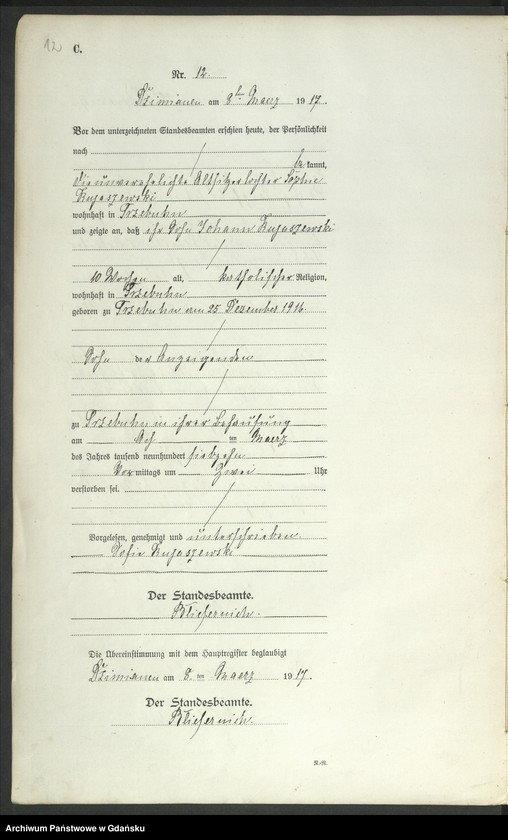 12 C.
Nr. 12.
Dzimianen am 8ten Maerz 1917.
Vor dem unterzeichneten Standesbeamten erschien heute, der Persönlichkeit
nach
bekannt,
die unverehelichte Altsitzertochter Sophie
Kujaszewski
wohnhaft in Trzebuhn
und zeigte an, daß ihr Sohn Johann Kujaszewski
10 Wochen alt, katholischer Religion,
wohnhaft in Trzebuhn
geboren zu Trzebuhn am 25 Dezember 1916.
Sohn der Anzeigenden
zu Trzebuhn in ihrer Behausung
am ten Maerz
des Jahres tausend neunhundert siebzehn
Vormittags um Zwei Uhr
verstorben sei.
Vorgelesen, genehmigt und unterschrieben
Sofie Kujaszewski
Der Standesbeamte.
Die Übereinstimmung mit dem Hauptregister beglaubigt
Dzimianen am 8. ten Maerz 1917.
Der Standesbeamte.
R.-R.
Archiwum Państwowe w Gdańsku